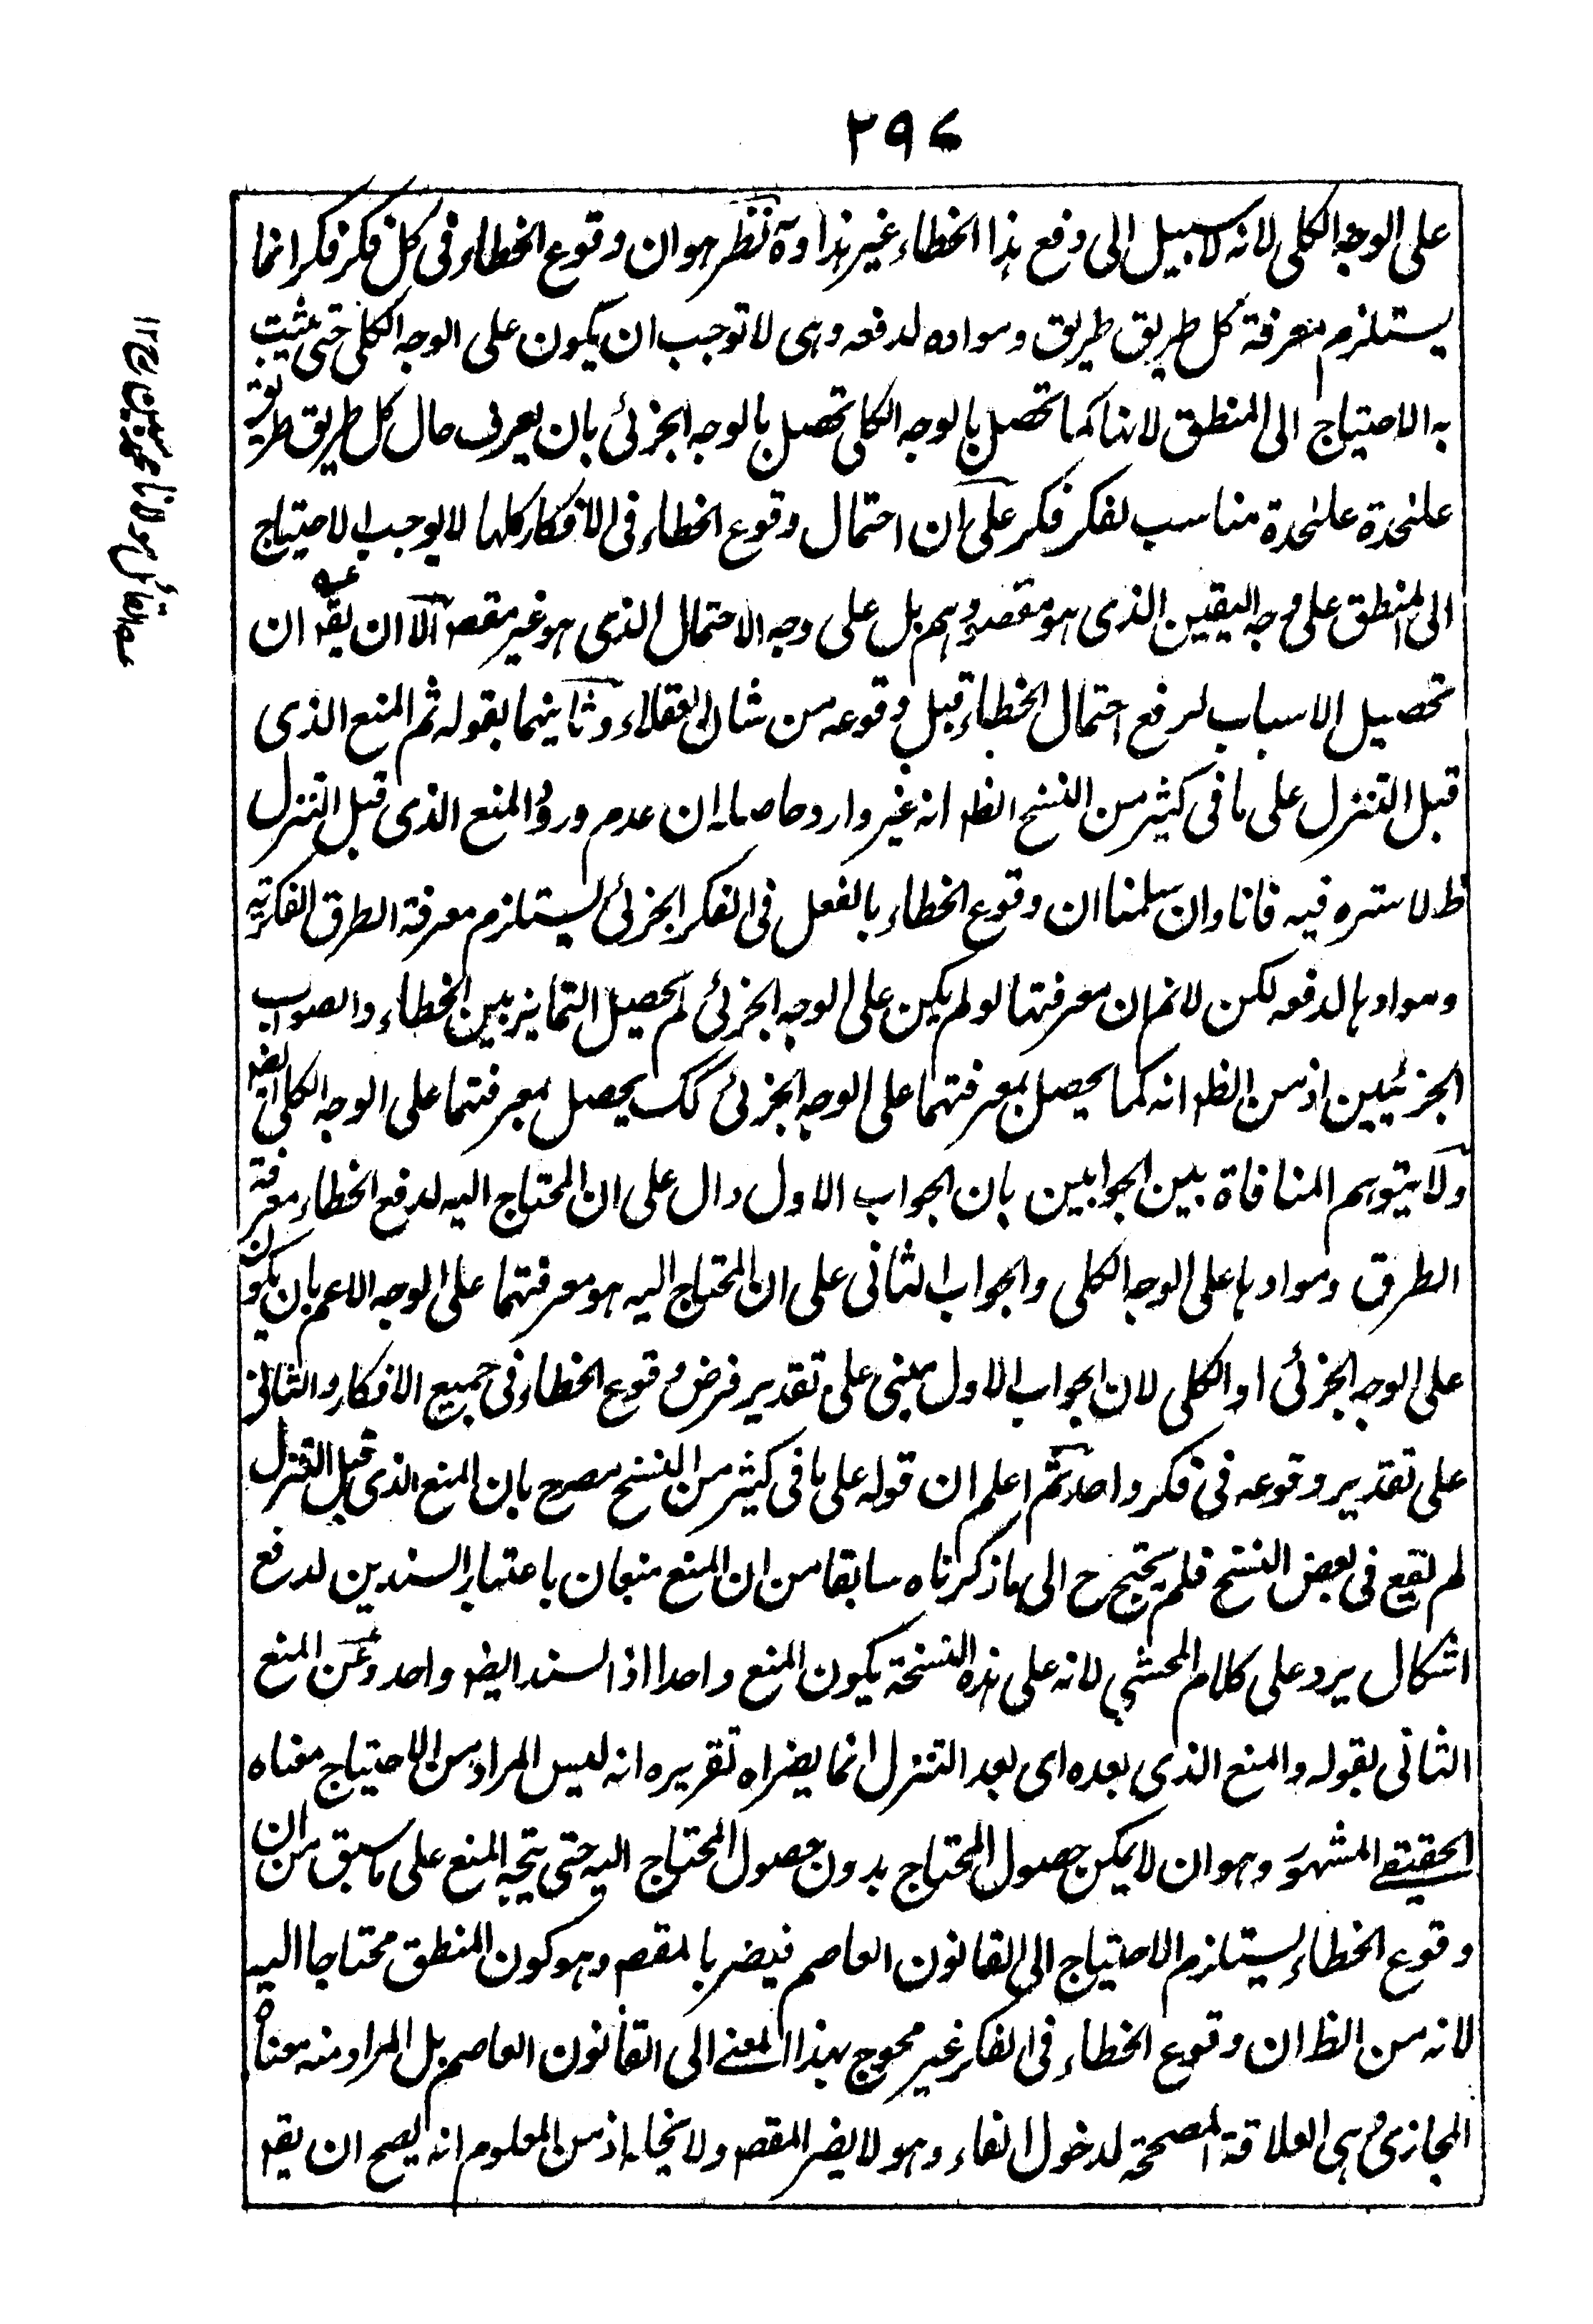 ٢٩٧
على الوجه الكلى لانه لا سبيل الى دفع هذا الخطاء غير هذا وفيه نظر هو ان وقوع الخطاء فى كل فكر فكر انما
يستلزم معرفة كل طريق طريق ومواده لدفعه وهى لا توجب ان يكون على الوجه الكلى حتى يثبت
به الاحتياج الى المنطق لانها كما تحصل بالوجه الكلى تحصل بالوجه الجزئى بان يعرف حال كل طريق طريق
علىحدة علىحدة مناسب لفكر فكر على ان احتمال وقوع الخطاء فى الافكار كلها لا يوجب الاحتياج
الى المنطق على وجه اليقين الذى هو مقصودهم بل على وجه الاحتمال الذى هو غير مقصم الا ان يقه ان
تحصيل الاسباب لرفع احتمال الخطاء قبل وقوعه من شان العقلاء وثانيهما بقوله ثم المنع الذى
قبل التنزل على ما فى كثير من النسخ الظه انه غير وارد حاصله ان عدم ورود المنع الذى قبل التنزل
ظ لا ستره فيه فانا وان سلمنا ان وقوع الخطاء بالفعل فى الفكر الجزئى يستلزم معرفة الطرق الفكرية
وموادها لدفعه لكن لانم ان معرفتها لو لم يكن على الوجه الجزئى لم يحصل التمايز بين الخطاء والصواب
الجزئيين اذ من الظه انه كما يحصل بمعرفتهما على الوجه الجزئى كك يحصل بمعرفتهما على الوجه الكلى ايضه
ولا يتوهم المنافاة بين الجوابين بان الجواب الاول دال على ان المحتاج اليه لدفع الخطاء معرفة
الطرق وموادها على الوجه الكلى والجواب الثانى على ان المحتاج اليه هو معرفتهما على الوجه الاعم بان يكون
على الوجه الجزئى او الكلى لان الجواب الاول مبنى على تقدير فرض وقوع الخطاء فى جميع الافكار والثانى
على تقدير وقوعه فى فكر واحد ثم اعلم ان قوله على ما فى كثير من النسخ مصرح بان المنع الذى قبل التنزل
لم يقع فى بعض النسخ فلم يحتج ح الى ما ذكرناه سابقا من ان المنع منعان باعتبار السندين لدفع
اشكال يرد على كلام المحشى لانه على هذه النسخة يكون المنع واحدا اذ السند ايضه واحد وعن المنع
الثانى بقوله والمنع الذى بعده اى بعد التنزل انما يضراه تقريره انه ليس المراد من الاحتياج معناه
الحقيقے المشهور وهو ان لا يمكن حصول المحتاج بدون حصول المحتاج اليه حتى يتجه المنع على ما سبق من ان
وقوع الخطاء يستلزم الاحتياج الى القانون العاصم فيضر بالمقصم وهو كون المنطق محتاجا اليه
لانه من الظ ان وقوع الخطاء فى الفكر غير محوج بهذا المعنے الى القانون العاصم بل المراد منه معناه
المجازى وهى العلاقة المصححة لدخول الفاء وهو لا يضر المقصم ولا يخله اذ من المعلوم انه يصح ان يقه